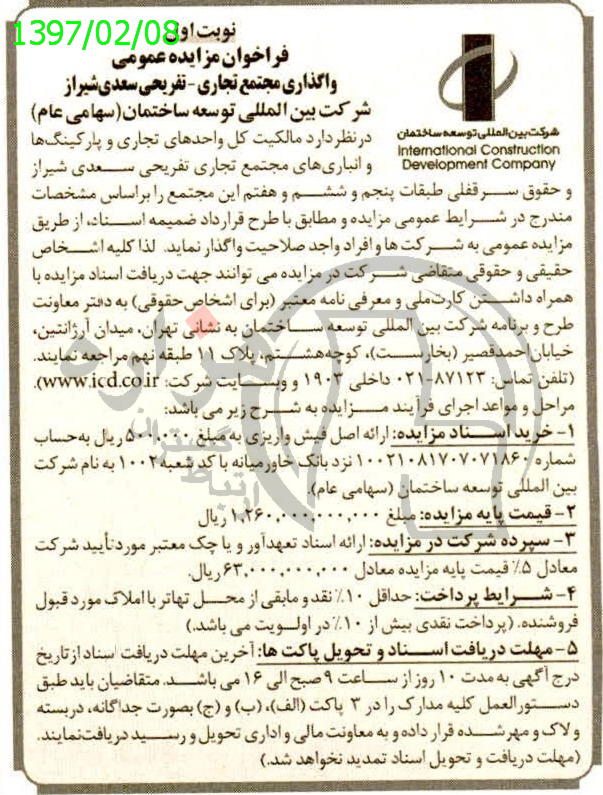 1397/02/08
نوبت اول
فراخوان مزایده عمومی
واگذاری مجتمع تجاری - تفریحی سعدی شیراز
شرکت بین المللی توسعه ساختمان (سهامی عام)
شرکت بین‌المللی توسعه ساختمان
International Construction
Development Company
در نظر دارد مالکیت کل واحدهای تجاری و پارکینگ‌ها
و انباری‌های مجتمع تجاری تفریحی سعدی شیراز
و حقوق سرقفلی طبقات پنجم و ششم و هفتم این مجتمع را براساس مشخصات
مندرج در شرایط عمومی مزایده و مطابق با طرح قرارداد ضمیمه اسناد، از طریق
مزایده عمومی به شرکت ها و افراد واجد صلاحیت واگذار نماید. لذا کلیه اشخاص
حقیقی و حقوقی متقاضی شرکت در مزایده می توانند جهت دریافت اسناد مزایده با
همراه داشتن کارت ملی و معرفی نامه معتبر (برای اشخاص حقوقی) به دفتر معاونت
طرح و برنامه شرکت بین المللی توسعه ساختمان به نشانی تهران، میدان آرژانتین،
خیابان احمد قصیر (بخارست)، کوچه هشتم، پلاک ۱۱ طبقه نهم مراجعه نمایند.
(تلفن تماس: ۸۷۱۲۳-۰۲۱ داخلی ۱۹۰۳ و وبسایت شرکت: www.icd.co.ir).
مراحل و مواعد اجرای فرآیند مزایده به شرح زیر می باشد:
۱- خرید اسناد مزایده: ارائه اصل فیش واریزی به مبلغ ۵۰۰,۰۰۰ ریال به حساب
شماره ۱۰۰۲۱۰۸۱۷۰۷۰۷۱۸۶۰ نزد بانک خاورمیانه با کد شعبه ۱۰۰۲ به نام شرکت
بین المللی توسعه ساختمان (سهامی عام).
۲- قیمت پایه مزایده: مبلغ ۱,۲۶۰,۰۰۰,۰۰۰,۰۰۰ ریال
۳- سپرده شرکت در مزایده: ارائه اسناد تعهدآور و یا چک معتبر مورد تأیید شرکت
معادل ۵٪ قیمت پایه مزایده معادل ۶۳,۰۰۰,۰۰۰,۰۰۰ ریال.
۴- شرایط پرداخت: حداقل ۱۰٪ نقد و مابقی از محل تهاتر با املاک مورد قبول
فروشنده. (پرداخت نقدی بیش از ۱۰٪ در اولویت می باشد.)
۵- مهلت دریافت اسناد و تحویل پاکت ها: آخرین مهلت دریافت اسناد از تاریخ
درج آگهی به مدت ۱۰ روز از ساعت ۹ صبح الی ۱۶ می باشد. متقاضیان باید طبق
دستورالعمل کلیه مدارک را در ۳ پاکت (الف)، (ب) و (ج) بصورت جداگانه، دربسته
و لاک و مهر شده قرار داده و به معاونت مالی و اداری تحویل و رسید دریافت نمایند.
(مهلت دریافت و تحویل اسناد تمدید نخواهد شد.)